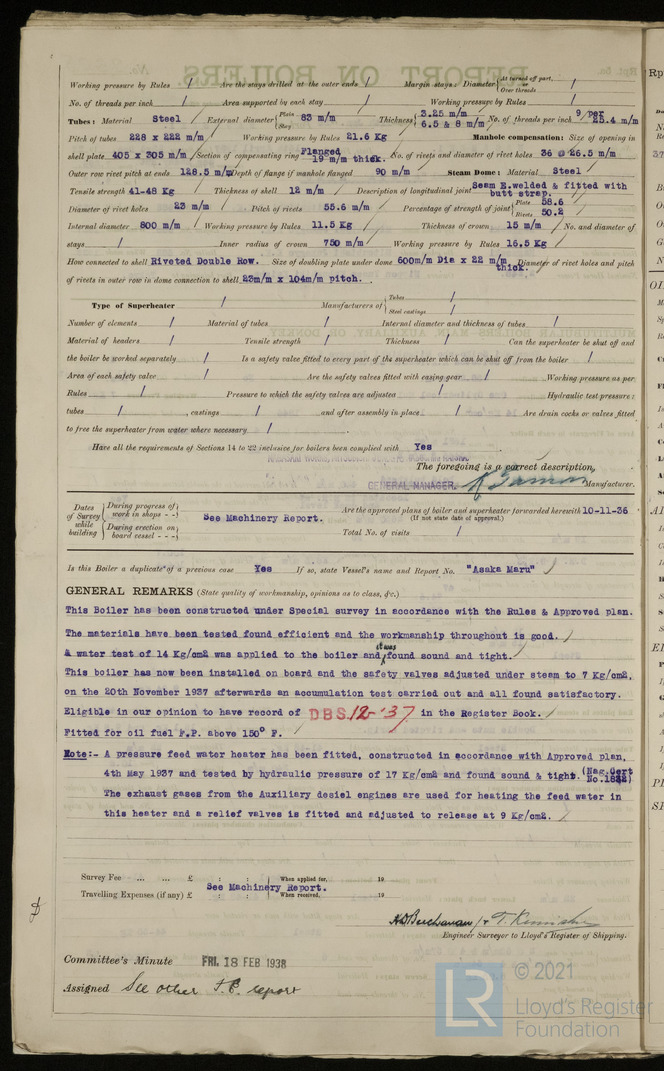 Working pressure by Rules / Are the stays drilled at the outer ends / Margin stays: Diameter { At turned off part, or Over threads /
No. of threads per inch / Area supported by each stay / Working pressure by Rules /
Tubes: Material Steel External diameter { Plain Stay 83 m/m Thickness { 3.25 m/m 6.5 & 8 m/m No. of threads per inch 9 per 25.4 m/m
Pitch of tubes 228 x 222 m/m Working pressure by Rules 21.6 Kg Manhole compensation: Size of opening in
shell plate 405 x 305 m/m Section of compensating ring Flanged 19 m/m thick. No. of rivets and diameter of rivet holes 36 @ 26.5 m/m
Outer row rivet pitch at ends 128.5 m/m Depth of flange if manhole flanged 90 m/m Steam Dome: Material Steel
Tensile strength 41-48 Kg Thickness of shell 12 m/m Description of longitudinal joint Seam E.welded & fitted with butt strap.
Diameter of rivet holes 23 m/m Pitch of rivets 55.6 m/m Percentage of strength of joint { Plate 58.6 Rivets 50.2
Internal diameter 800 m/m Working pressure by Rules 11.5 Kg Thickness of crown 15 m/m No. and diameter of
stays / Inner radius of crown 750 m/m Working pressure by Rules 16.5 Kg
How connected to shell Riveted Double Row. Size of doubling plate under dome 600m/m Dia x 22 m/m thick. Diameter of rivet holes and pitch
of rivets in outer row in dome connection to shell 23m/m x 104m/m pitch.
Type of Superheater / Manufacturers of { Tubes / Steel castings /
Number of elements / Material of tubes / Internal diameter and thickness of tubes /
Material of headers / Tensile strength / Thickness / Can the superheater be shut off and
the boiler be worked separately / Is a safety valve fitted to every part of the superheater which can be shut off from the boiler /
Area of each safety valve / Are the safety valves fitted with easing gear / Working pressure as per
Rules / Pressure to which the safety valves are adjusted / Hydraulic test pressure:
tubes / , castings / and after assembly in place / Are drain cocks or valves fitted
to free the superheater from water where necessary /
Have all the requirements of Sections 14 to 22 inclusive for boilers been complied with Yes
The foregoing is a correct description,
GENERAL MANAGER. Manufacturer.
Dates of Survey while building { During progress of work in shops - - } { During erection on board vessel - - - } See Machinery Report. Are the approved plans of boiler and superheater forwarded herewith 10-11-36
(If not state date of approval.)
Total No. of visits /
Is this Boiler a duplicate of a previous case Yes If so, state Vessel's name and Report No. "Asaka Maru"
GENERAL REMARKS (State quality of workmanship, opinions as to class, &c.)
This Boiler has been constructed under Special survey in accordance with the Rules & Approved plan.
The materials have been tested found efficient and the workmanship throughout is good.
A water test of 14 Kg/cm2 was applied to the boiler and it was found sound and tight.
This boiler has now been installed on board and the safety valves adjusted under steam to 7 Kg/cm2.
on the 20th November 1937 afterwards an accumulation test carried out and all found satisfactory.
Eligible in our opinion to have record of DBS. 12-'37 in the Register Book.
Fitted for oil fuel F.P. above 150° F.
Note:- A pressure feed water heater has been fitted, constructed in accordance with Approved plan,
4th May 1937 and tested by hydraulic pressure of 17 Kg/cm2 and found sound & tight. (Nag.Cert
The exhaust gases from the Auxiliary desiel engines are used for heating the feed water in
this heater and a relief valves is fitted and adjusted to release at 9 Kg/cm2.
Survey Fee ... ... £ : : When applied for, 19
See Machinery Report.
Travelling Expenses (if any) £ : : When received, 19
Engineer Surveyor to Lloyd's Register of Shipping.
Committee's Minute FRI. 18 FEB 1938
Assigned See other F.E. report
© 2021
LR
Lloyd's Register
Foundation